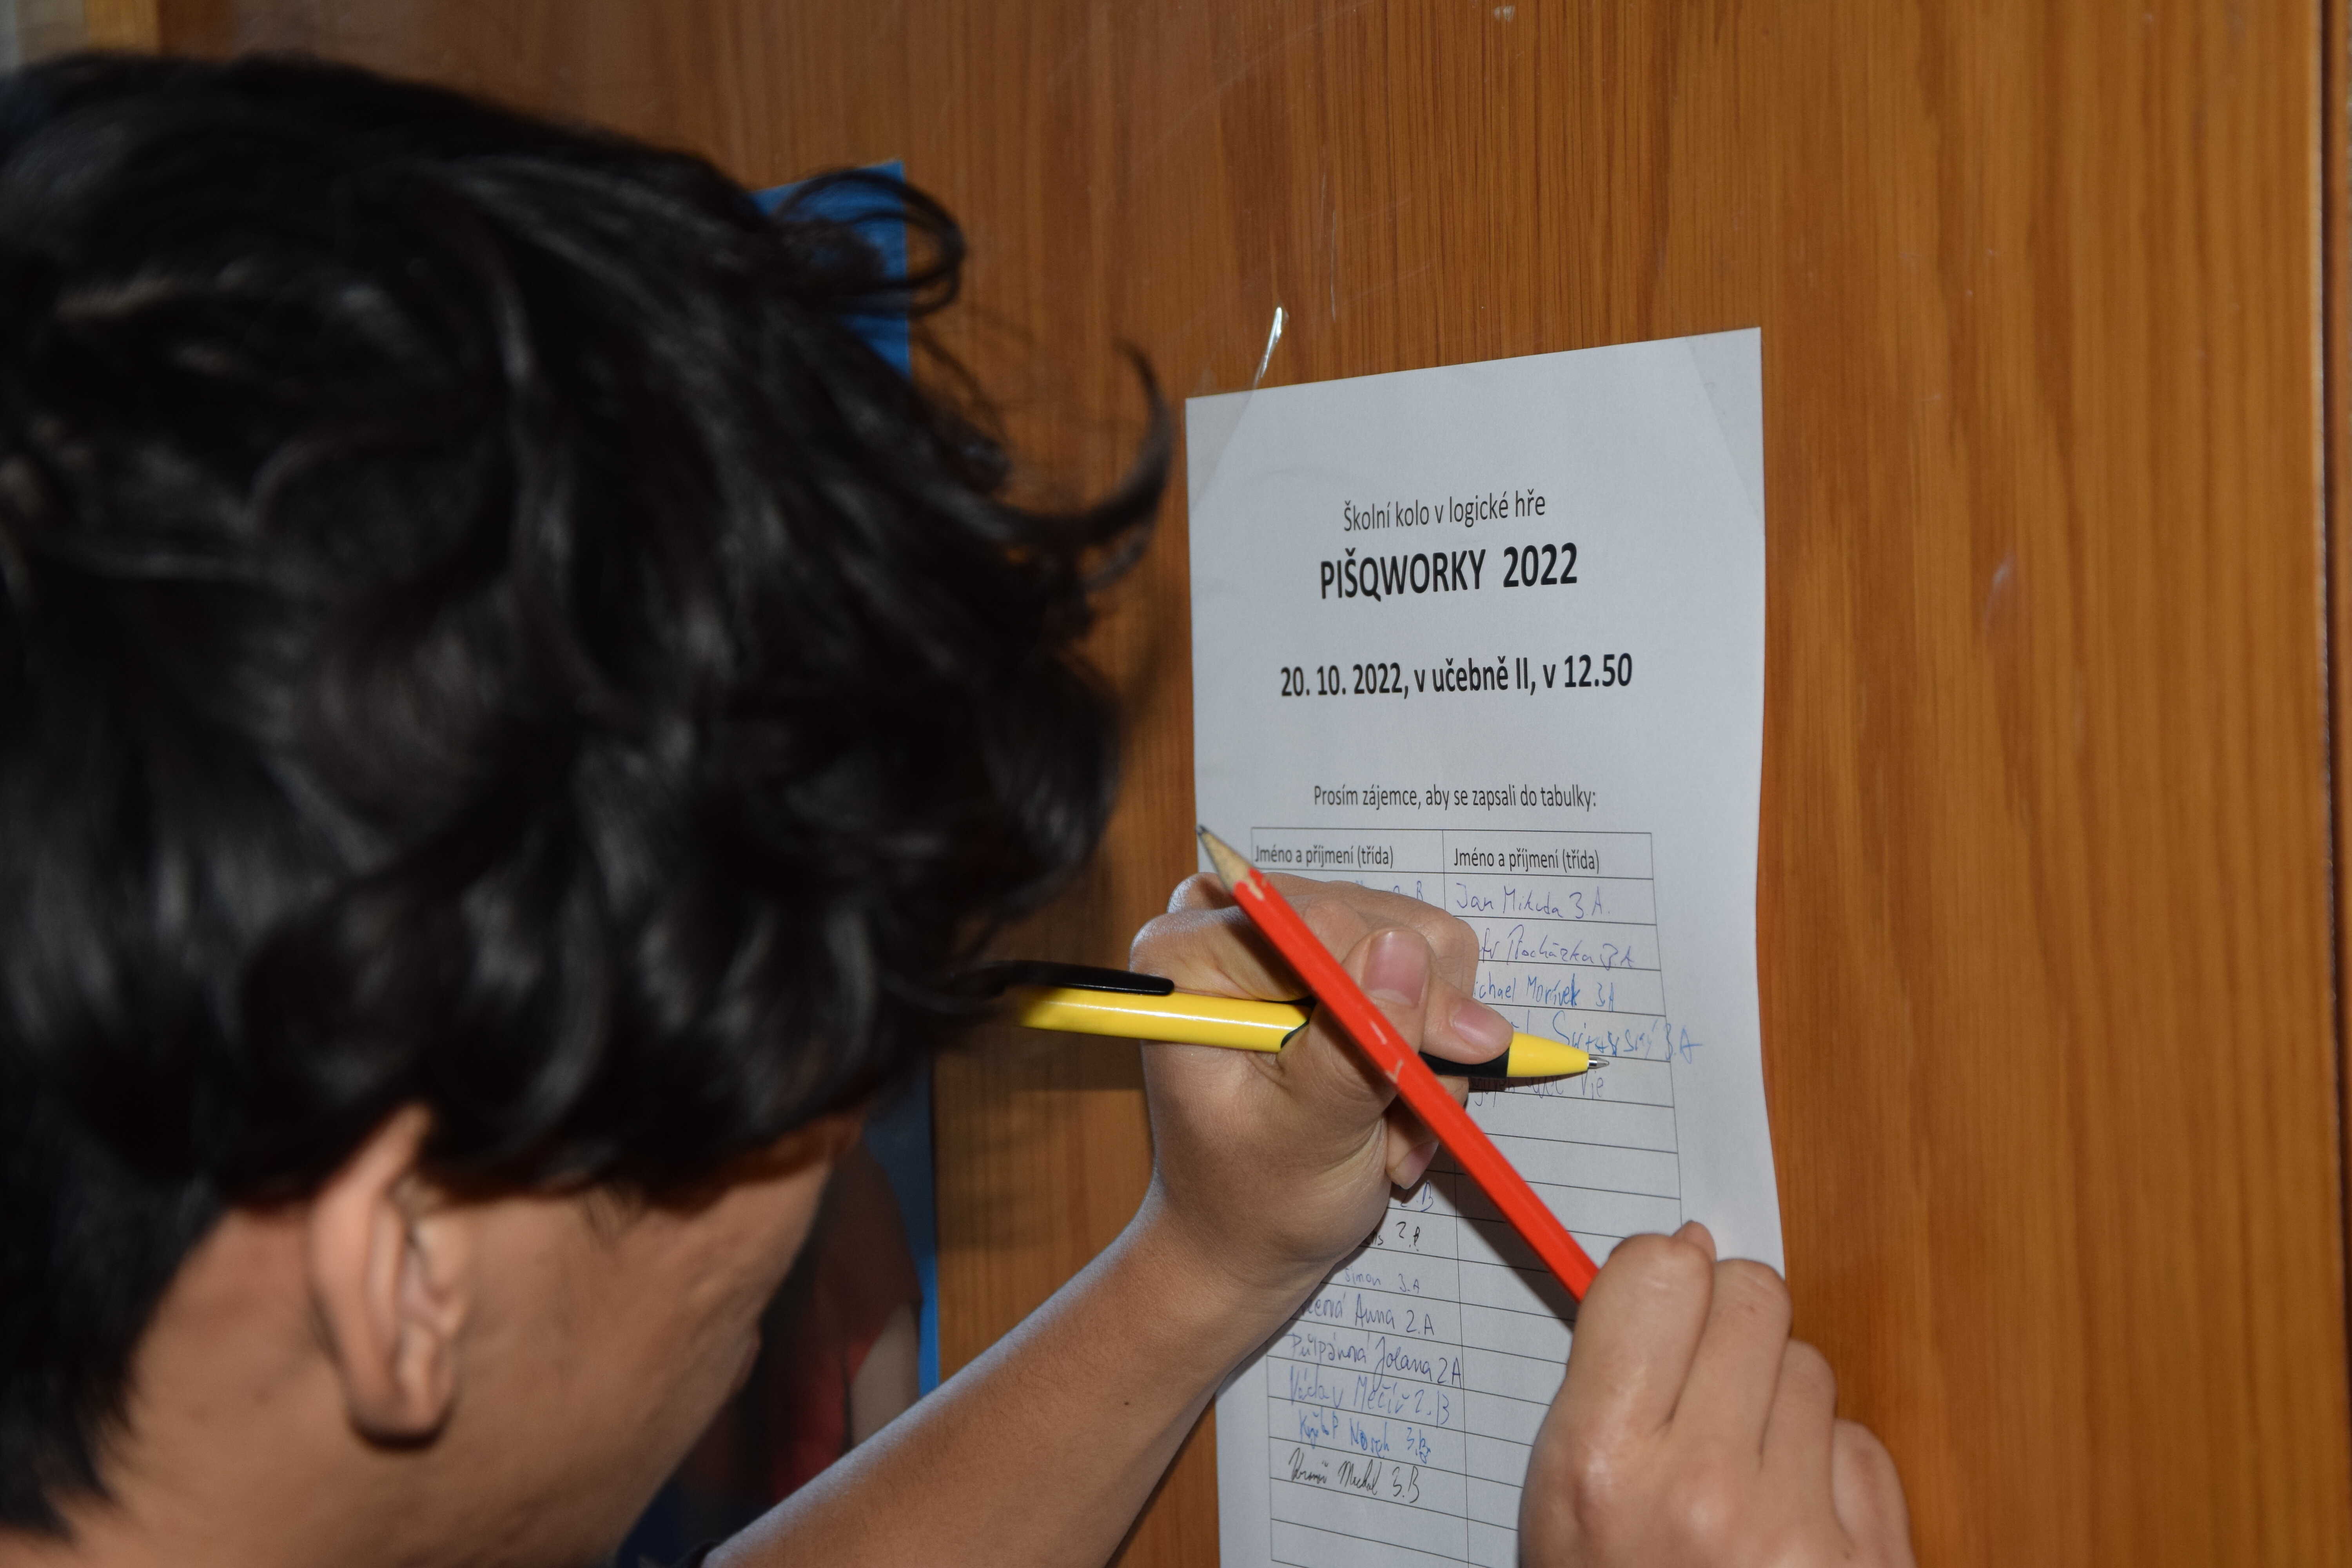 Školní kolo v logické hře
PIŠQWORKY 2022
20. 10. 2022, v učebně II, v 12.50
Prosím zájemce, aby se zapsali do tabulky:
Jméno a příjmení (třída) Jméno a příjmení (třída)
B Jan Mikuda 3 A.
Procházka 3A
ichael Morávek 3A
3.A
Vie
2.B
2.
Šimon 3.A
Anna 2.A
Půlpánová Jolana 2A
Václav 2.B
3.B
Michal 3.B